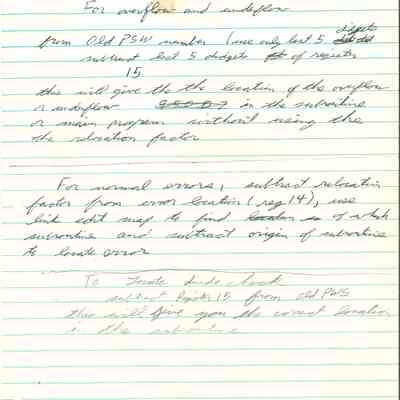 For overflow and underflow
from Old PSW number (use only last 5 digets
subtract last 5 didgets of register
15
this will give the the location of the overflow
or underflow in the subroutine
or main program without using the
the relocation factor
For normal errors, subtract relocation
factor from error location (reg 14), use
link edit map to find of which
subroutine and subtract origin of subroutine
to locate error
To locate divide check
subtract Register 15 from old PWS
this will give you the correct location
in the subroutine